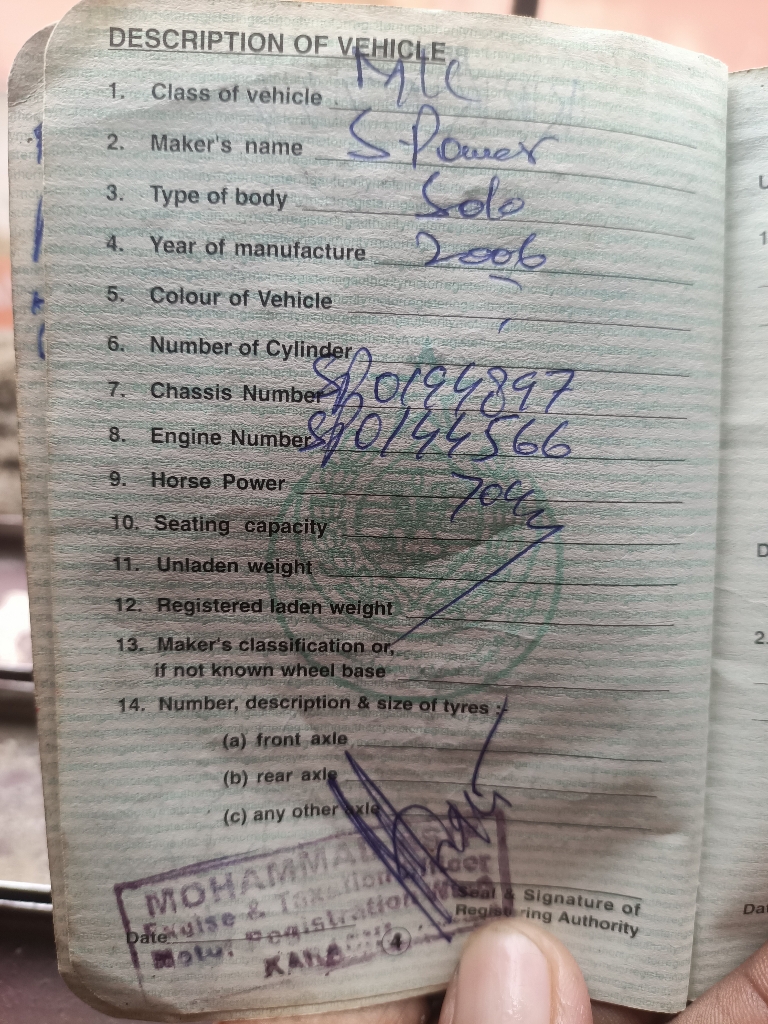 DESCRIPTION OF VEHICLE
1. Class of vehicle M/C
2. Maker's name S-Power
3. Type of body Solo
4. Year of manufacture 2006
5. Colour of Vehicle
6. Number of Cylinder
7. Chassis Number SP0194897
8. Engine Number SP0144566
9. Horse Power 70cc
10. Seating capacity
11. Unladen weight
12. Registered laden weight
13. Maker's classification or,
if not known wheel base
14. Number, description & size of tyres :-
(a) front axle
(b) rear axle
(c) any other axle
MOHAMMAD
Excise & Taxation
Motor Registration Wing
Seal & Signature of
Registering Authority
Date
4